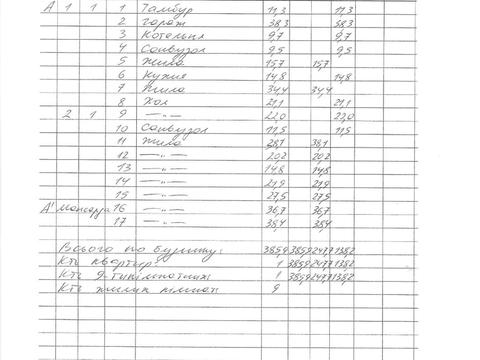 А 1 1 1 Тамбур 11,3 11,3
2 гараж 58,3 58,3
3 Котельня 9,7 9,7
4 Санвузол 9,5 9,5
5 Жила 15,7 15,7
6 Кухня 14,8 14,8
7 Жила 34,4 34,4
8 Хол 21,1 21,1
2 1 9 —„— 22,0 22,0
10 Санвузол 11,5 11,5
11 Жила 38,1 38,1
12 —„— 20,2 20,2
13 —„— 14,8 14,8
14 —„— 21,9 21,9
15 —„— 27,5 27,5
А' мансарда 16 —„— 36,7 36,7
17 —„— 38,4 38,4
Всього по будинку: 385,9 385,9 247,7 138,2
К-ть квартир: 1 385,9 247,7 138,2
К-ть 9-тикімнатних: 1 385,9 247,7 138,2
К-ть жилих кімнат: 9